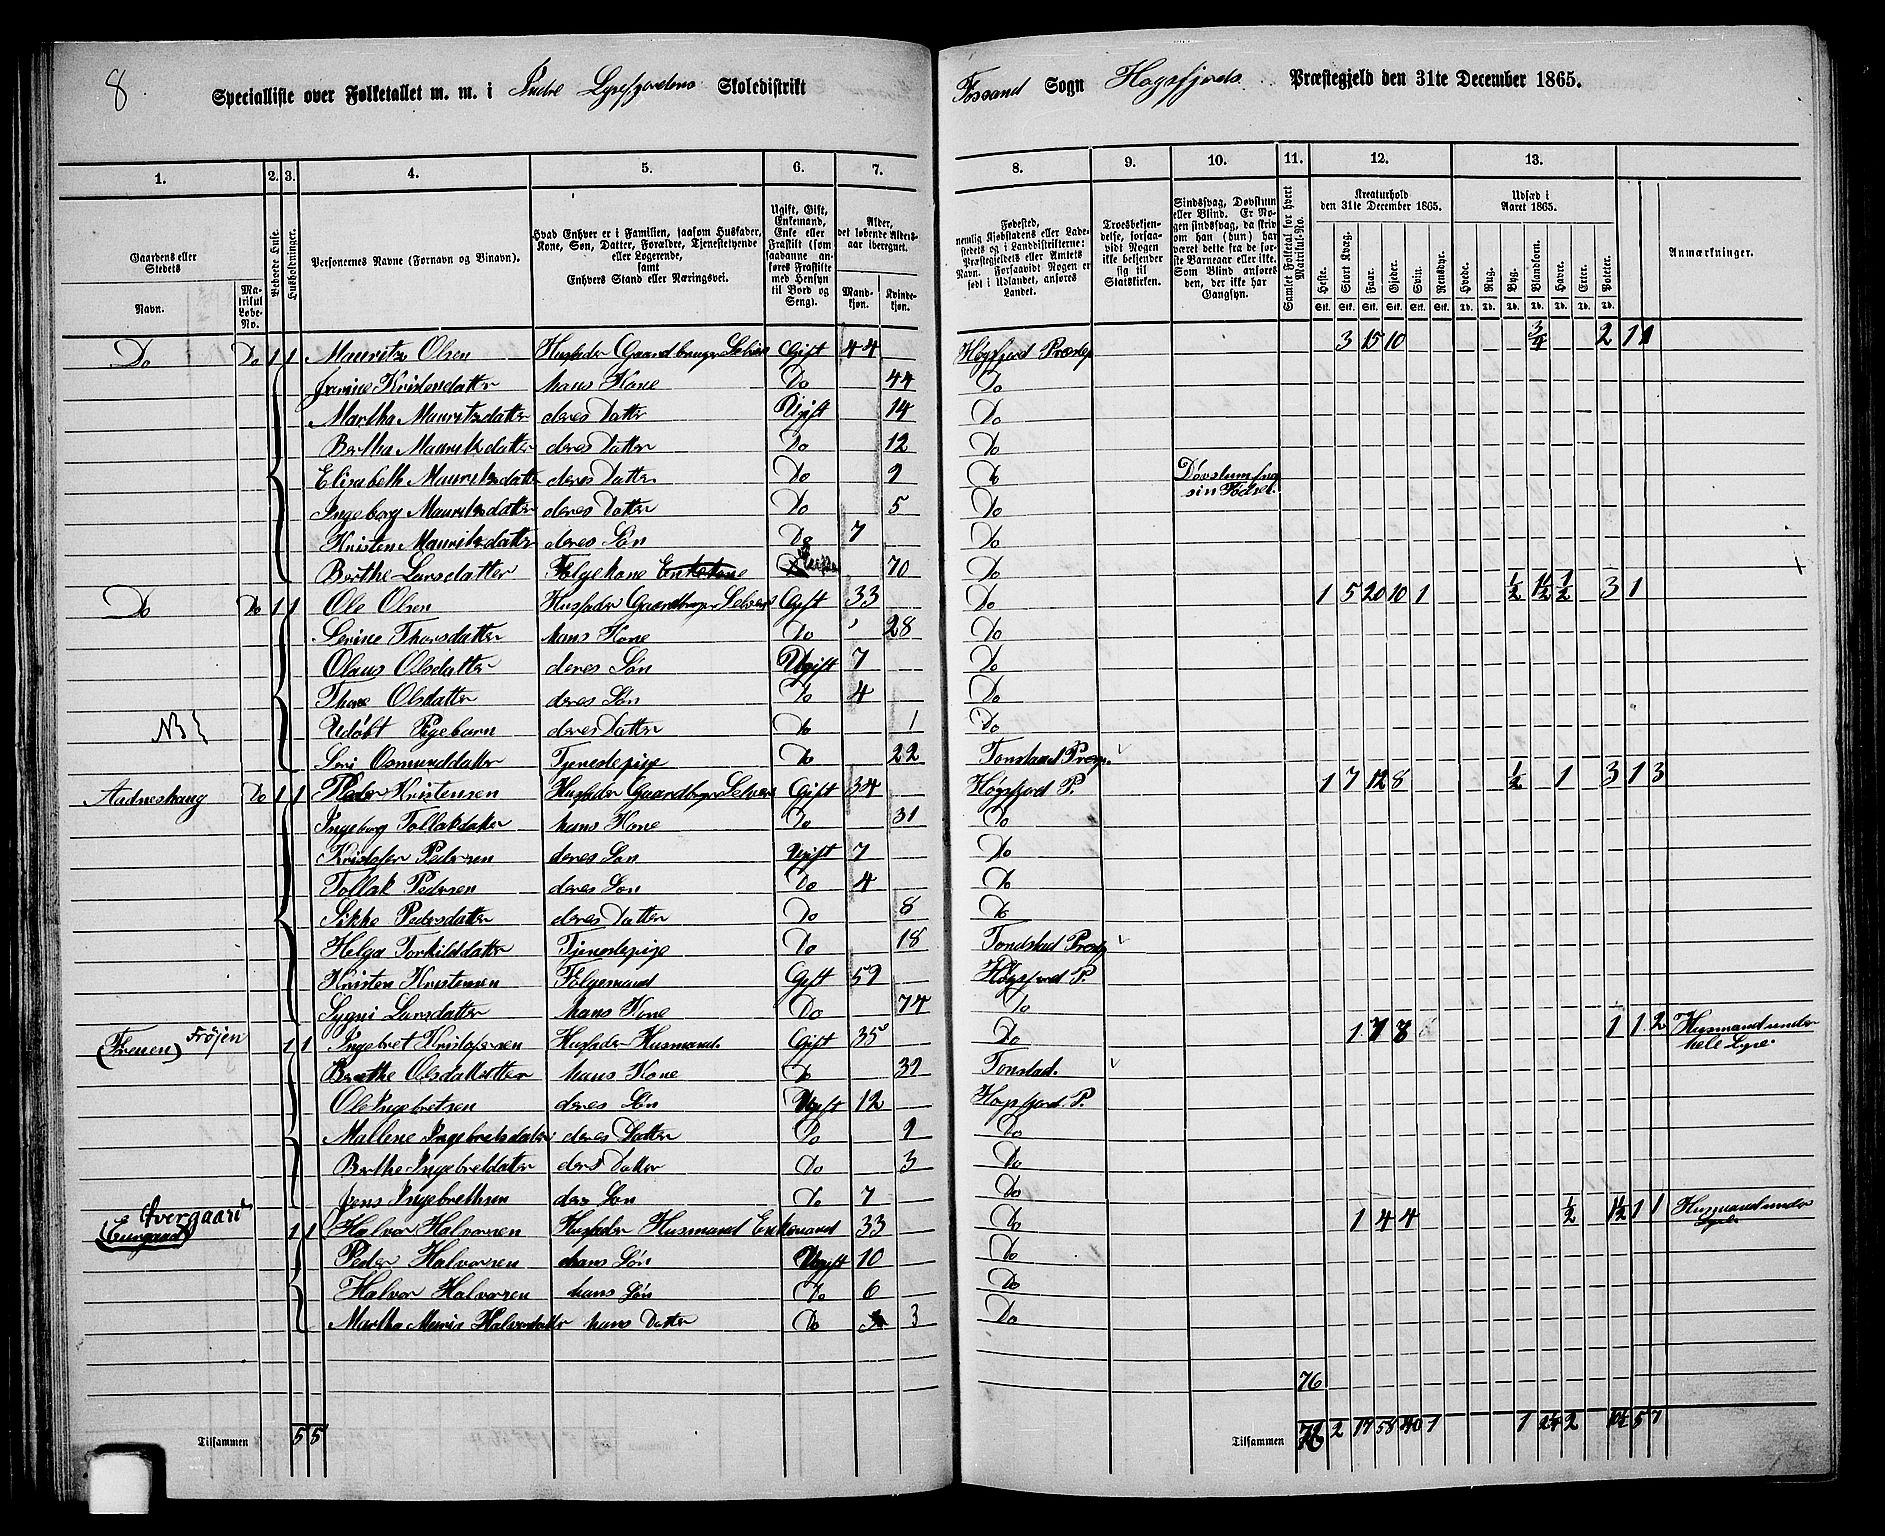 8
Specialliste over Folketallet m. m. i Indre Lysefjordens Skoledistrikt
Fossand Sogn Høgsfjords Præstegjeld den 31te December 1865.
1. 2. 3. 4. 5. 6. 7. 8. 9. 10. 11. 12. 13.
Gaardens eller Stedets
Navn.
Matrikul Løbe-No.
Beboede Huse.
Husholdninger.
Personernes Navne (Fornavn og Binavn).
Hvad Enhver er i Familien, saasom Husfader, Kone, Søn, Datter, Forældre, Tjenestetyende eller Logerende, samt Enhvers Stand eller Næringsvei.
Ugift, Gift, Enkemand, Enke eller Fraskilt (som saadanne anføres Fraskilte med Hensyn til Bord og Seng).
Alder, det løbende Aldersaar iberegnet.
Mandkjøn.
Kvindekjøn.
Fødested, nemlig Kjøbstadens eller Ladestedets og i Landdistrikterne: Præstegjeldets eller Amtets Navn. Forsaavidt Nogen er født i Udlandet, anføres Landet.
Troesbekjendelse, forsaavidt Nogen ikke bekjender sig til Statskirken.
Sindssvag, Døvstum eller Blind. Er Nogen sindssvag, da skrives om han (hun) har været dette fra de første Barneaar eller ikke. Som Blind anføres den, der ikke har Gangsyn.
Samlet Folketal for hvert Matrikul-No.
Kreaturhold den 31te December 1865.
Heste. Stort Kvæg. Faar. Gjeder. Svin. Rensdyr.
Udsæd i Aaret 1865.
Hvede. Rug. Byg. Blandkorn. Havre. Erter. Poteter.
Anmærkninger.
Do Do 1 1 Mauritz Olsen Husfader Gaardbruger Selveier Gift 44 Høgsfjord Præstg 3 15 10 3/4 2 1 1
Jorine Kristensdatter hans Kone Do 44 Do
Martha Mauritzdatter deres Datter Ugift 14 Do
Bertha Mauritzdatter deres Datter Do 12 Do
Elisabeth Mauritzdatter deres Datter Do 9 Do Døvstum fra sin Fødsel.
Ingeborg Mauritzdatter deres Datter Do 5 Do
Kristen Mauritzdatter deres Søn Do 7 Do
Berthe Larsdatter Følgekone Enkekone 70 Do
Do Do 1 1 Ole Olsen Husfader Gaardbruger Selveier Gift 33 Do 1 5 20 10 1 1/2 1 1/2 1/2 3 1
Serine Thorsdatter hans Kone Do 28 Do
Olaus Olsdatter deres Søn Ugift 7 Do
Thore Olsdatter deres Søn Do 4 Do
NB { Udøbt Pigebarn deres Datter Do 1 Do
Siri Osmunddatter Tjenestepige Do 22 Tonstad Præstg.
Aadneshaug Do 1 1 Peder Kristensen Husfader Gaardbruger Selveier Gift 34 Høgsfjord P. 1 7 12 8 1/2 1 3 1 3
Ingeborg Tollakdatter hans Kone Do 31 Do
Kristofer Pedersen deres Søn Ugift 7 Do
Tollak Pedersen deres Søn Do 4 Do
Sikke Pedersdatter deres Datter Do 8 Do
Helga Torkilddatter Tjenestepige Do 18 Tondstad Præstg
Kristen Kristensen Følgemand Gift 59 Høgsfjord P.
Sygni Larsdatter hans Kone Do 74 Do
(Frenen) Frøjen 1 1 Ingebret Kristofersen Husfader Husmand. Gift 35 Do 1 7 8 1 1 2 Husmand under hele Lyse.
Berthe Olsdatter hans Kone Do 32 Tonstad.
Ole Ingebretsen deres Søn Ugift 12 Høgsfjord P.
Mallene Ingebretsdatter deres Datter Do 9 Do
Berthe Ingebretdatter deres Datter Do 3 Do
Jens Ingebrethsen deres Søn Do 7 Do
Øvergaard 1 1 Halvor Halvorsen Husfader Husmand Enkemand 33 Do 1 4 4 1/2 1 1/2 1 1 Husmand under Lyse
Peder Halvorsen hans Søn Ugift 10 Do
Halvor Halvorsen hans Søn Do 6 Do
Martha Maris Halvorsdatter hans Datter Do 3 Do
76
Tilsammen 5 5
Tilsammen 2 17 58 40 1 1 2 5 7